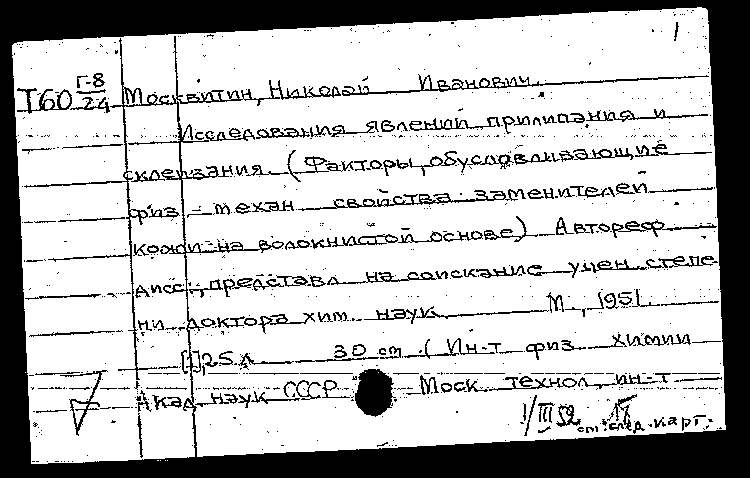 1
Т60 Г-8/24 Москвитин, Николай Иванович.
Исследования явлений прилипания и
склеивания. (Факторы, обуславливающие
физ.-механ. свойства заменителей
кожи на волокнистой основе) Автореф.
дисс., представл. на соискание учен. степе
ни доктора хим. наук. М., 1951.
[1], 25 л. 30 см. (Ин-т физ. химии
Акад. наук СССР Моск. технол. ин-т
1/III 52 см. след. карт.